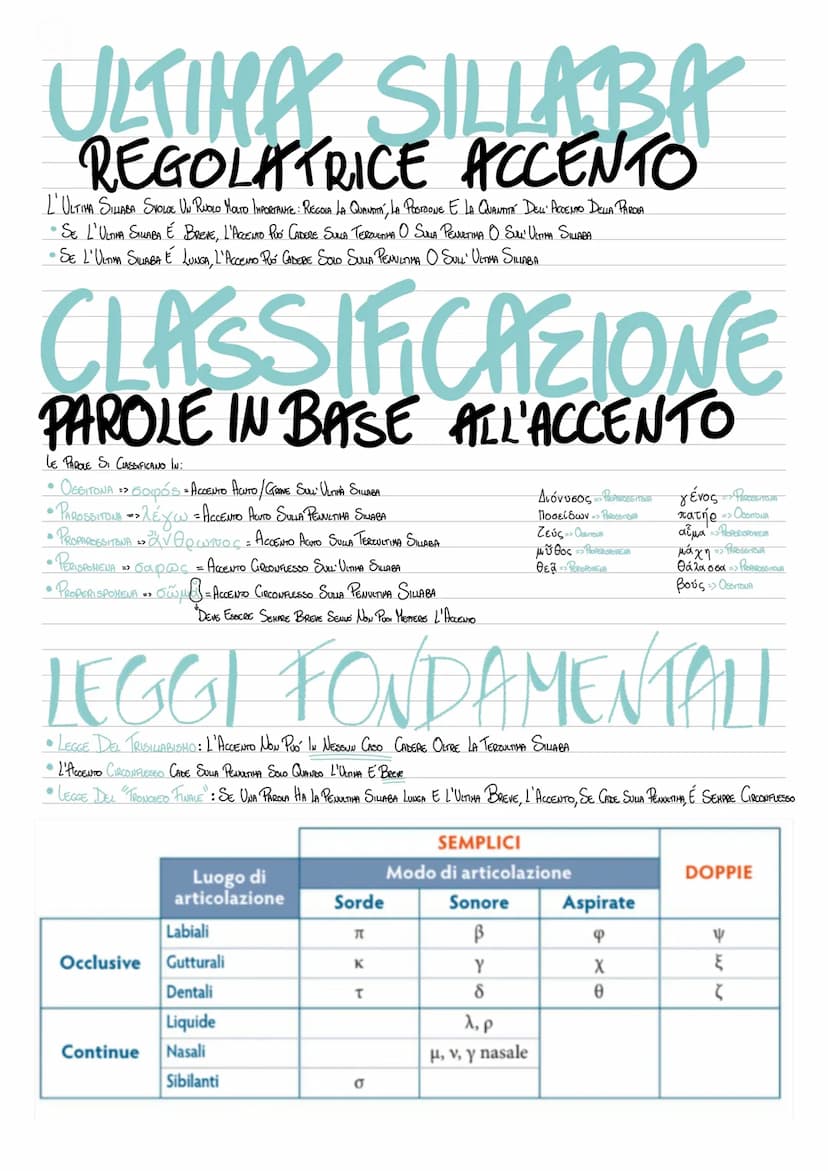 ULTIMA SILLABA
REGOLATRICE ACCENTO
L'ULTIMA SILLABA SVOLGE UN RUOLO MOLTO IMPORTANTE: REGOLA LA QUANTITÀ, LA POSIZIONE E LA QUANTITÀ DELL'ACCENTO DELLA PAROLA
• SE L'ULTIMA SILLABA É BREVE, L'ACCENTO PUÓ CADERE SULLA TERZULTIMA O SULLA PENULTIMA O SULL'ULTIMA SILLABA
• SE L'ULTIMA SILLABA É LUNGA, L'ACCENTO PUÓ CADERE SOLO SULLA PENULTIMA O SULL'ULTIMA SILLABA
CLASSIFICAZIONE
PAROLE IN BASE ALL'ACCENTO
LE PAROLE SI CLASSIFICANO IN:
• OSSITONA => σοφός = ACCENTO ACUTO/GRAVE SULL'ULTIMA SILLABA
• PAROSSITONA => λέγω = ACCENTO ACUTO SULLA PENULTIMA SILLABA
• PROPAROSSITONA => ἄνθρωπος = ACCENTO ACUTO SULLA TERZULTIMA SILLABA
• PERISPOMENA => σαφῶς = ACCENTO CIRCONFLESSO SULL'ULTIMA SILLABA
• PROPERISPOMENA => σῶμα = ACCENTO CIRCONFLESSO SULLA PENULTIMA SILLABA
DEVE ESSERE SEMPRE BREVE SENNÓ NON PUOI METTERE L'ACCENTO
Διόνυσος => PROPAROSSITONA
Ποσείδων => PAROSSITONA
Ζεύς => OSSITONA
μῦθος => PROPERISPOMENA
θεᾷ => PERISPOMENA
γένος => PAROSSITONA
πατήρ => OSSITONA
αἷμα => PROPERISPOMENA
μάχη => PAROSSITONA
θάλασσα => PROPAROSSITONA
βούς => OSSITONA
LEGGI FONDAMENTALI
• LEGGE DEL TRISILLABISMO: L'ACCENTO NON PUÓ IN NESSUN CASO CADERE OLTRE LA TERZULTIMA SILLABA
• L'ACCENTO CIRCONFLESSO CADE SULLA PENULTIMA SOLO QUANDO L'ULTIMA É BREVE
• LEGGE DEL "TROCHEO FINALE": SE UNA PAROLA HA LA PENULTIMA SILLABA LUNGA E L'ULTIMA BREVE, L'ACCENTO, SE CADE SULLA PENULTIMA, É SEMPRE CIRCONFLESSO
SEMPLICI
DOPPIE
Luogo di articolazione
Modo di articolazione
Sorde Sonore Aspirate
Occlusive
Labiali π β φ ψ
Gutturali κ γ χ ξ
Dentali τ δ θ ζ
Continue
Liquide λ, ρ
Nasali μ, ν, γ nasale
Sibilanti σ